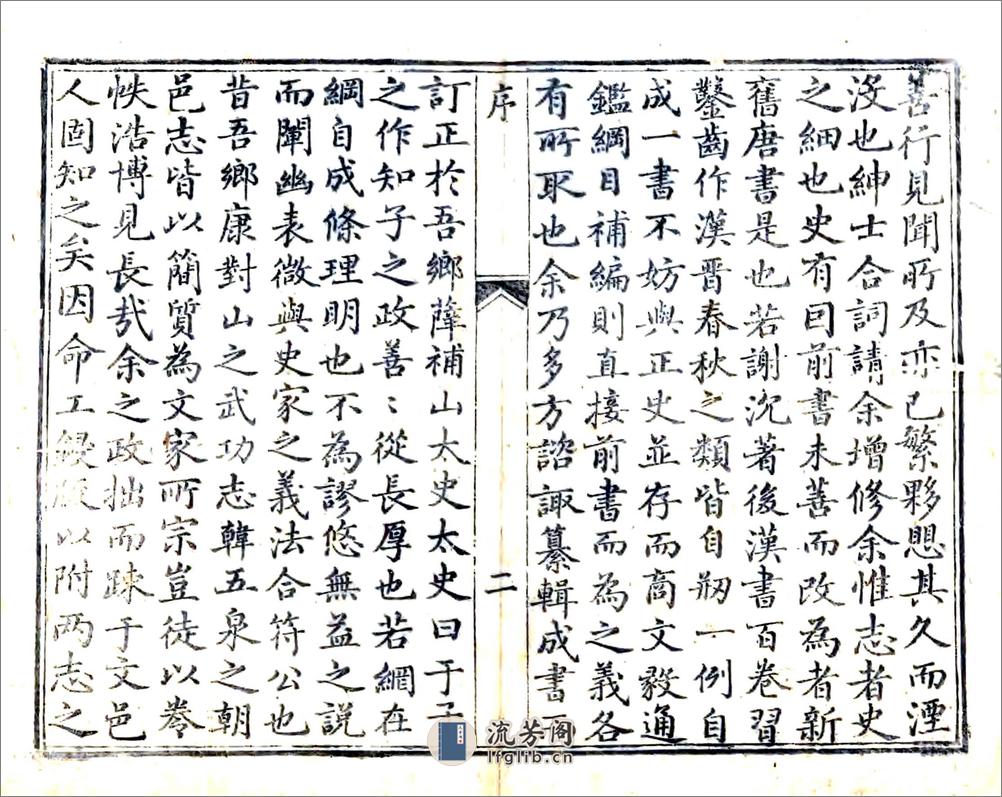 善行見聞所及亦已繁夥恐其久而湮
沒也紳士合詞請余增修余惟志者史
之細也史有因前書未善而改為者新
舊唐書是也若謝沉著後漢書百卷習
鑿齒作漢晋春秋之類皆自剏一例自
成一書不妨與正史並存而商文毅通
鑑綱目補編則直接前書而為之義各
有所取也余乃多方諮諏纂輯成書
序
二
訂正於吾鄉薛補山太史太史曰于子
之作知子之政善〻從長厚也若網在
綱自成條理明也不為謬悠無益之說
而闡幽表微與史家之義法合符公也
昔吾鄉康對山之武功志韓五泉之朝
邑志皆以簡質為文家所宗豈徒以卷
帙浩博見長哉余之政拙而踈于文邑
人固知之矣因命工鋟版以附兩志之
流芳阁
lfglib.cn